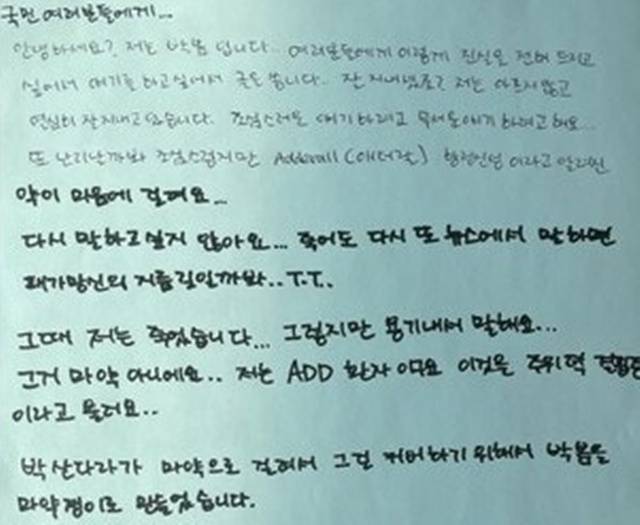 국민 여러분들에게...
안녕하세요? 저는 박봄 입니다.. 여러분들에게 이렇게 진실을 전해 드리고
싶어서 얘기를 하고싶어서 글을 씁니다. 잘 지내셨죠? 저는 아프지않고
열심히 잘지내고 있습니다. 조심스러운 얘기하려고 무서운얘기 하려고 해요...
또 난리날까봐 조심스럽지만 Adderall (애더럴) 향정신성 이라고 알려진
약이 마음에 걸려요...
다시 말하고싶지 않아요... 죽어도 다시 또 뉴스에서 말하면
패가망신의 지름길일까봐..T.T.
그때 저는 죽었습니다... 그렇지만 용기내서 말해요...
그거 마약 아니에요.. 저는 ADD 환자 이구요 이것은 주위력 결핍증
이라고 불려요..
박산다라가 마약으로 걸려서 그걸 커버하기 위해서 박봄을
마약쟁이로 만들었습니다.